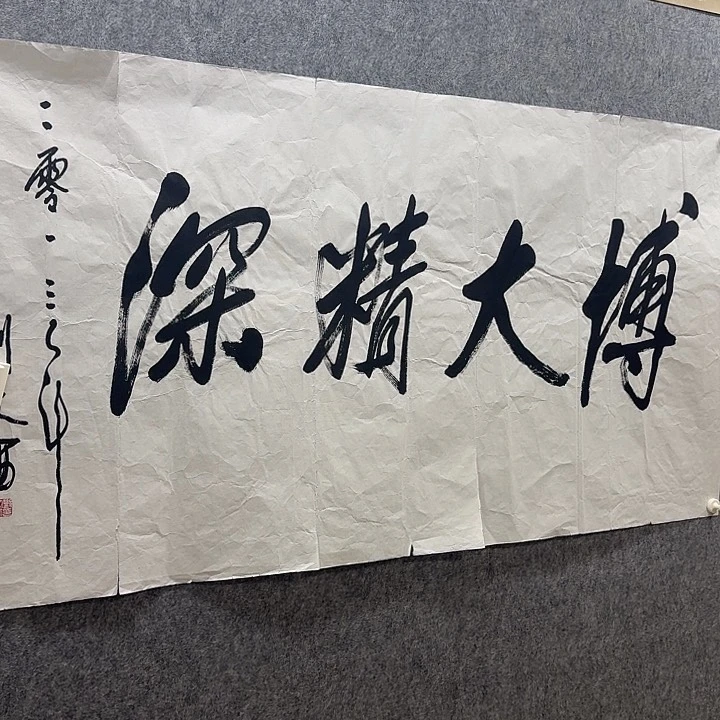 博大精深
二零一三年